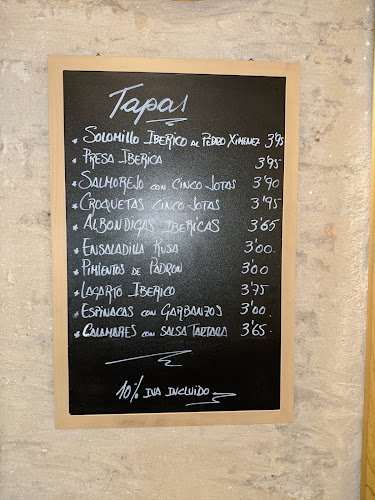 Tapas
* SOLOMILLO IBERICO AL PEDRO XIMENEZ 3'95
* PRESA IBERICA 3'95
* SALMOREJO CON CINCO JOTAS 3'90
* CROQUETAS CINCO JOTAS 3'95
* ALBONDIGAS IBERICAS 3'65
* ENSALADILLA RUSA 3'00.
* PIMIENTOS DE PADRON 3'00
* LAGARTO IBERICO 3'75
* ESPINACAS CON GARBANZOS 3'00.
* CALAMARES CON SALSA TARTARA 3'65.
10% IVA INCLUIDO